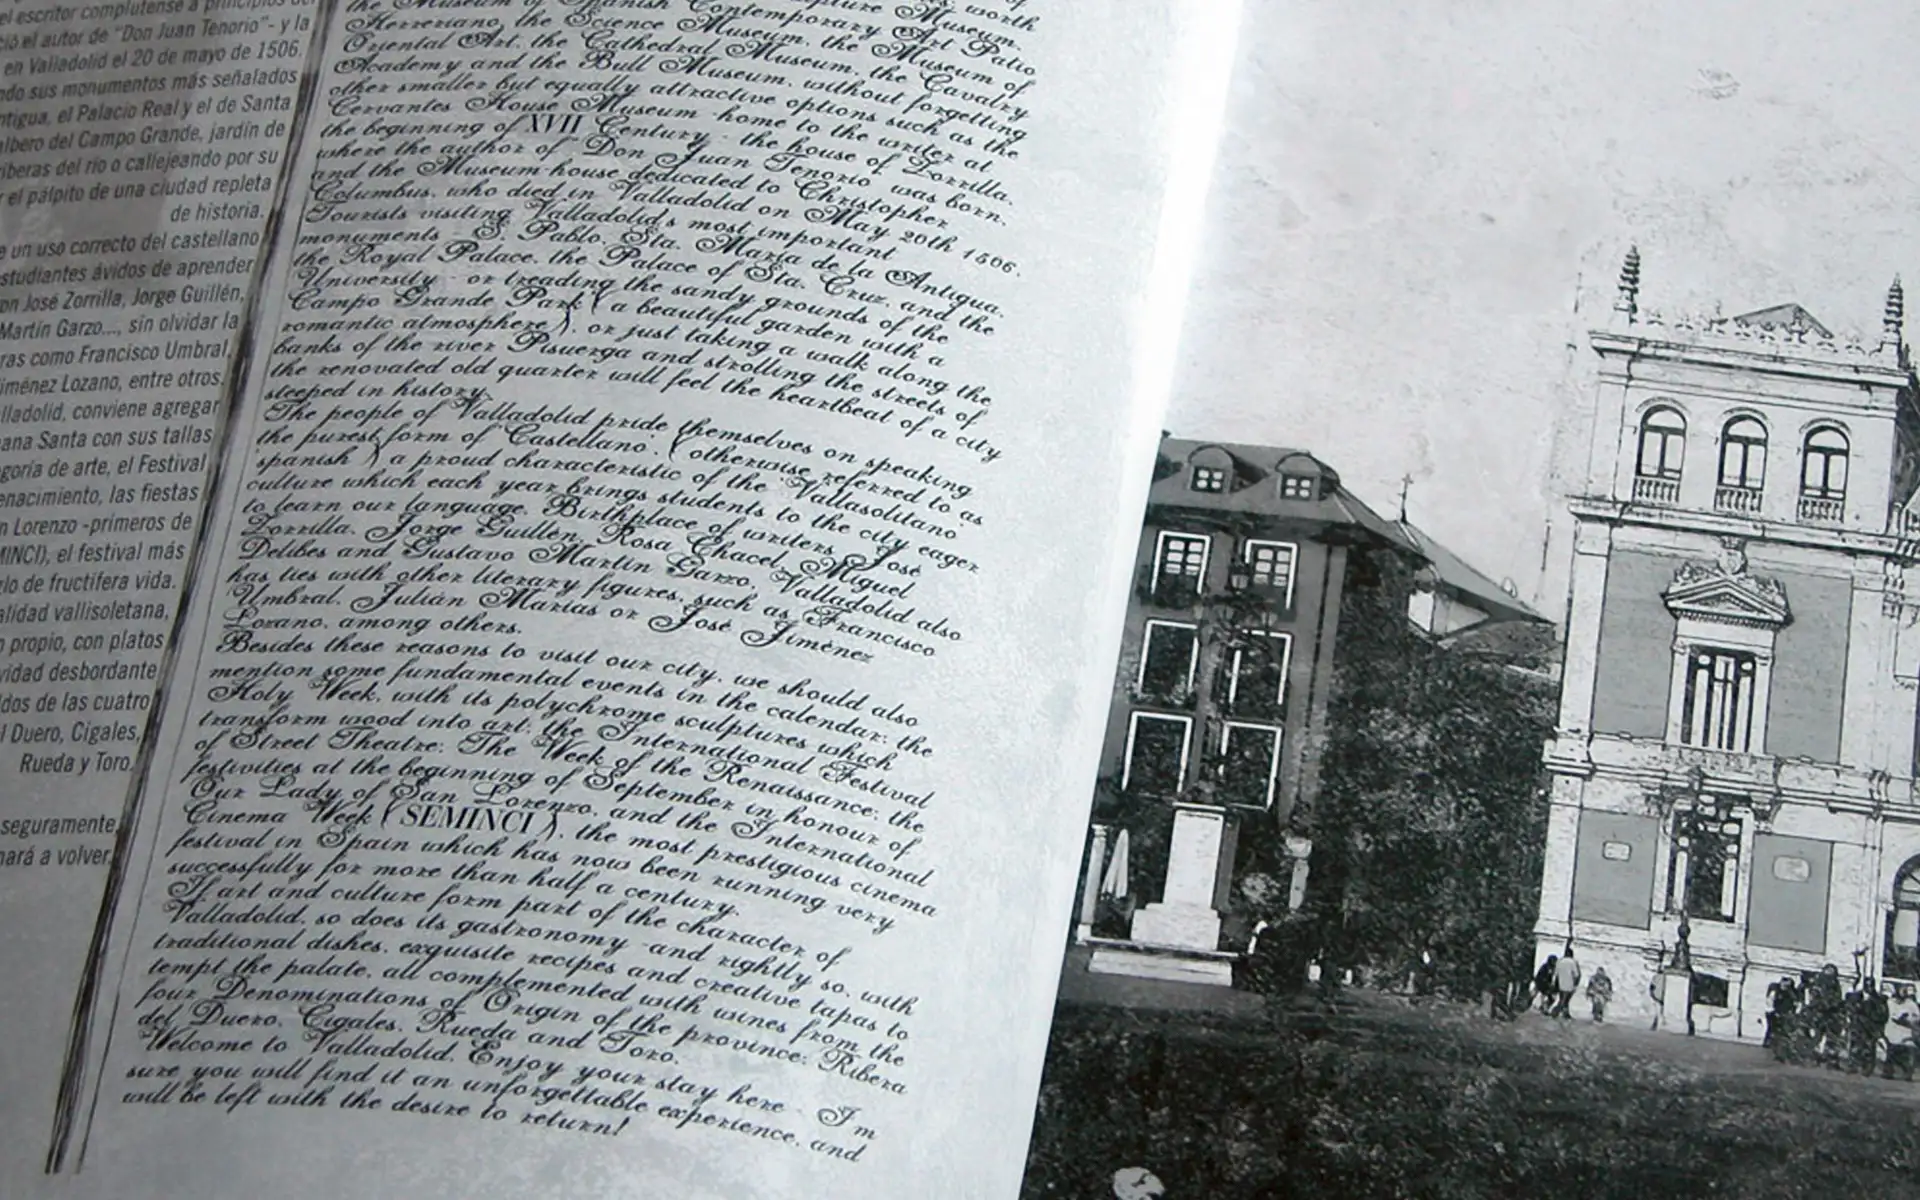 el escritor complutense a principios del
ció el autor de "Don Juan Tenorio"- y la
en Valladolid el 20 de mayo de 1506.
ndo sus monumentos más señalados
ntigua, el Palacio Real y el de Santa
albero del Campo Grande, jardín de
riberas del río o callejeando por su
r el pálpito de una ciudad repleta
de historia.
e un uso correcto del castellano
studiantes ávidos de aprender
on José Zorrilla, Jorge Guillén,
Martín Garzo..., sin olvidar la
ras como Francisco Umbral,
iménez Lozano, entre otros.
lladolid, conviene agregar
ana Santa con sus tallas
egoría de arte, el Festival
enacimiento, las fiestas
n Lorenzo -primeros de
MINCI), el festival más
lo de fructífera vida.
alidad vallisoletana,
o propio, con platos
vidad desbordante
dos de las cuatro
l Duero, Cigales,
Rueda y Toro.
seguramente,
nará a volver.
worth
the Museum of Spanish Contemporary Art Patio
Herreriano, the Science Museum, the Museum of
Oriental Art, the Cathedral Museum, the Cavalry
Academy and the Bull Museum, without forgetting
other smaller but equally attractive options such as the
Cervantes House Museum -home to the writer at
the beginning of XVII Century - the house of Zorrilla,
where the author of "Don Juan Tenorio" was born,
and the Museum-house dedicated to Christopher
Columbus, who died in Valladolid on May 20th 1506.
Tourists visiting Valladolid's most important
monuments - S. Pablo, Sta. María de la Antigua,
the Royal Palace, the Palace of Sta. Cruz, and the
University - or treading the sandy grounds of the
Campo Grande Park (a beautiful garden with a
romantic atmosphere), or just taking a walk along the
banks of the river Pisuerga and strolling the streets of
the renovated old quarter will feel the heartbeat of a city
steeped in history.
The people of Valladolid pride themselves on speaking
the purest form of "Castellano", (otherwise referred to as
spanish) a proud characteristic of the "Vallasolitano"
culture which each year brings students to the city eager
to learn our language. Birthplace of writers José
Zorrilla, Jorge Guillén, Rosa Chacel, Miguel
Delibes and Gustavo Martín Garzo, Valladolid also
has ties with other literary figures, such as Francisco
Umbral, Julián Marías or José Jiménez
Lozano, among others.
Besides these reasons to visit our city, we should also
mention some fundamental events in the calendar: the
Holy Week, with its polychrome sculptures which
transform wood into art; the International Festival
of Street Theatre; The Week of the Renaissance; the
festivities at the beginning of September in honour of
Our Lady of San Lorenzo, and the International
Cinema Week (SEMINCI), the most prestigious cinema
festival in Spain which has now been running very
successfully for more than half a century.
If art and culture form part of the character of
Valladolid, so does its gastronomy -and rightly so, with
traditional dishes, exquisite recipes and creative tapas to
tempt the palate, all complemented with wines from the
four Denominations of Origin of the province: Ribera
del Duero, Cigales, Rueda and Toro.
Welcome to Valladolid. Enjoy your stay here - I'm
sure you will find it an unforgettable experience, and
will be left with the desire to return!